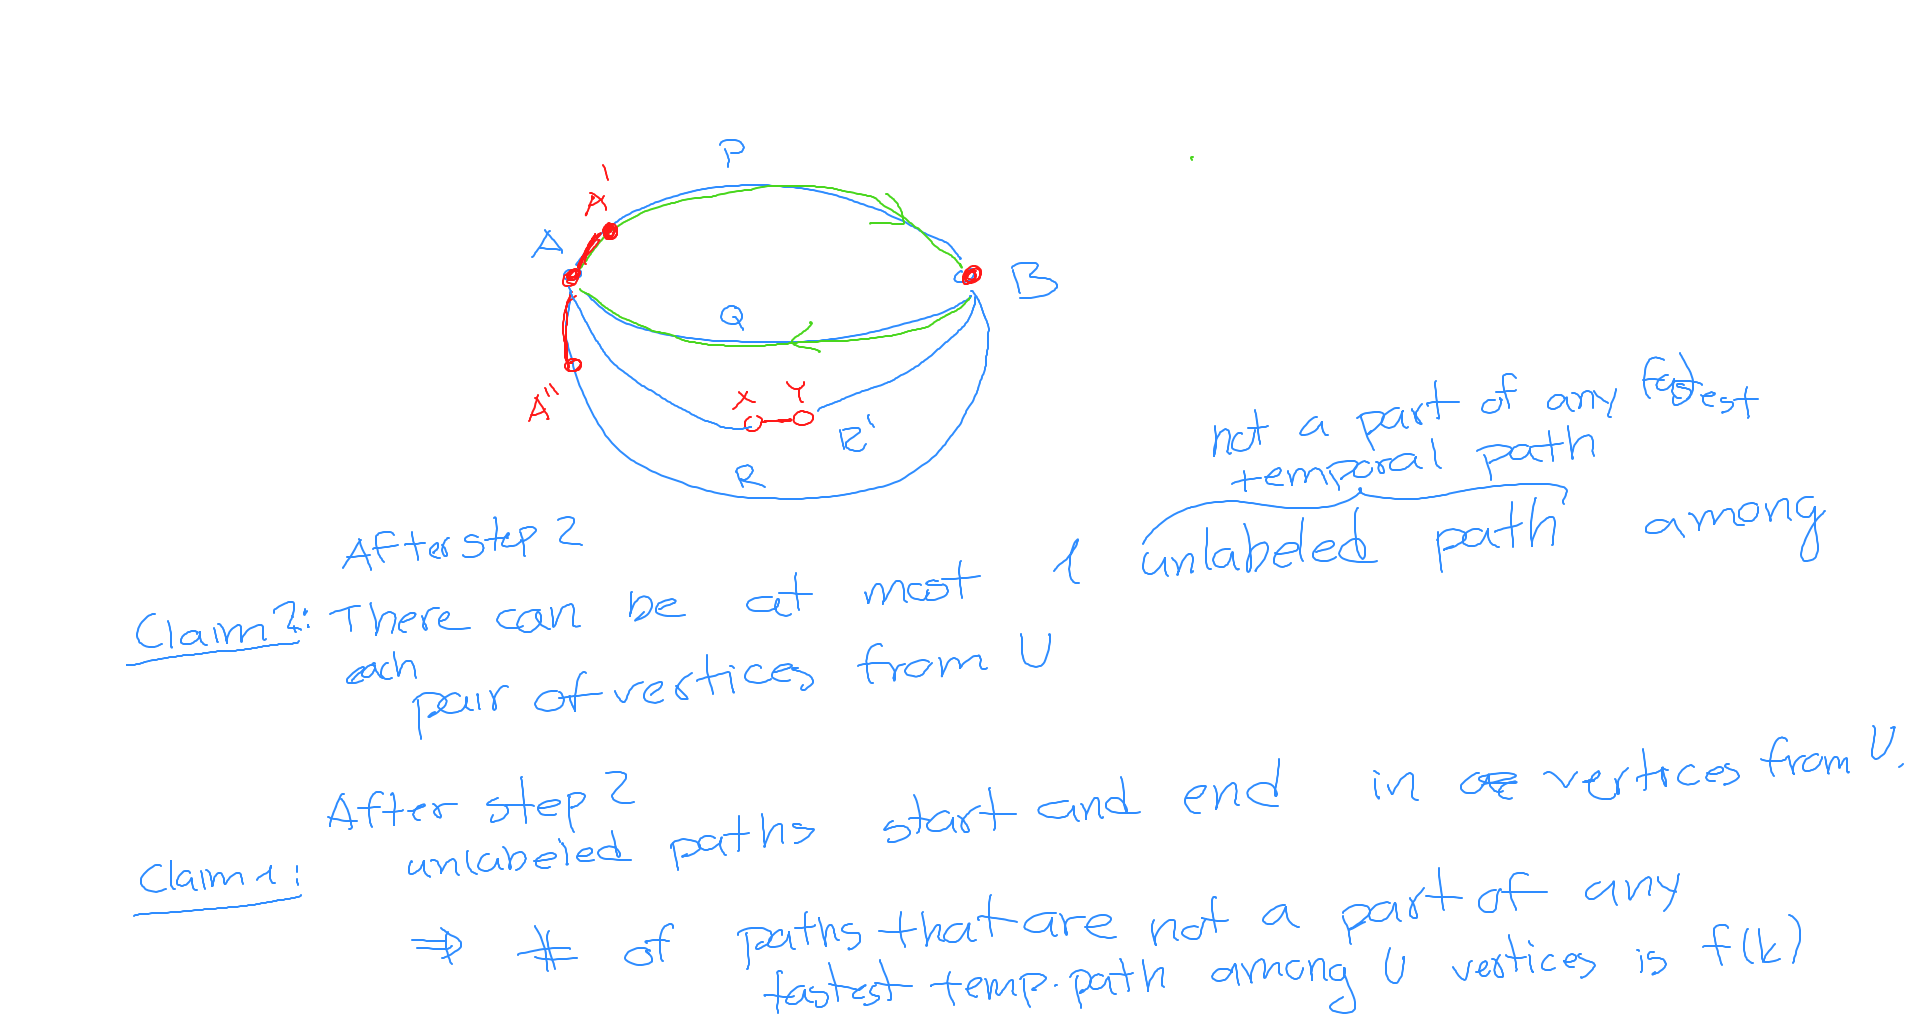 P
A'
A
B
Q
A"
X Y
R'
R
not a part of any fastest
temporal path
After step 2
Claim 2: There can be at most 1 unlabeled path among
each
pair of vertices from U
After step 2
Claim 1: unlabeled paths start and end in vertices from U.
⇒ # of paths that are not a part of any
fastest temp. path among U vertices is f(k)